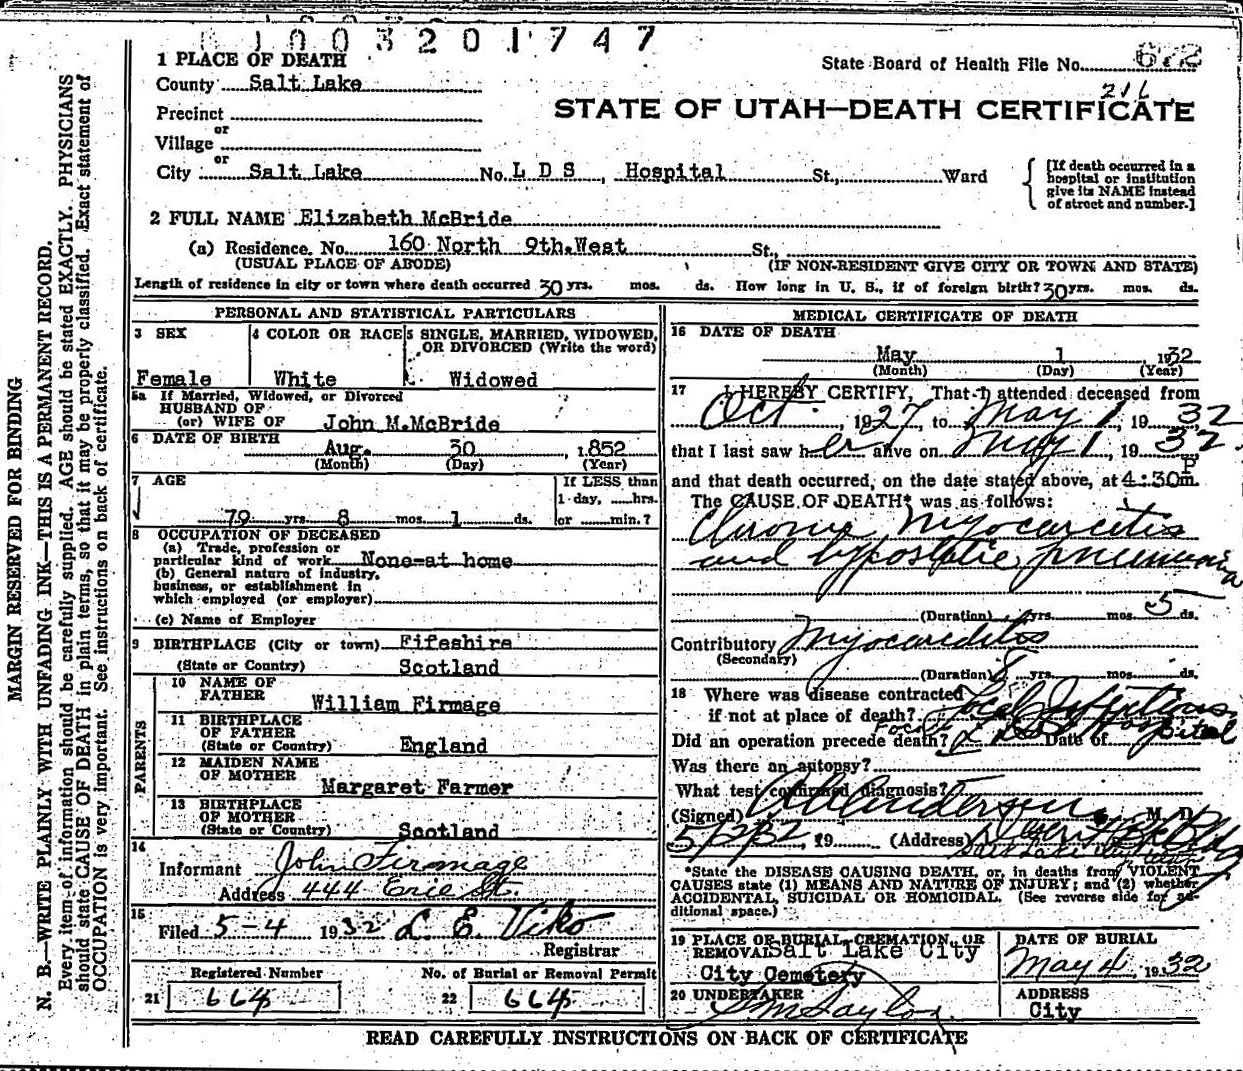 1003201747
1 PLACE OF DEATH
State Board of Health File No. 672
County Salt Lake
216
STATE OF UTAH—DEATH CERTIFICATE
Precinct
or
Village
or
City Salt Lake No. L D S, Hospital St., Ward
[If death occurred in a hospital or institution give its NAME instead of street and number.]
2 FULL NAME Elizabeth McBride
(a) Residence. No. 160 North 9th.West St.,
(USUAL PLACE OF ABODE) (IF NON-RESIDENT GIVE CITY OR TOWN AND STATE)
Length of residence in city or town where death occurred 30 yrs. mos. ds. How long in U. S., if of foreign birth? 30 yrs. mos. ds.
PERSONAL AND STATISTICAL PARTICULARS
3 SEX
Female
4 COLOR OR RACE
White
5 SINGLE, MARRIED, WIDOWED,
OR DIVORCED (Write the word)
Widowed
5a If Married, Widowed, or Divorced
HUSBAND OF
(or) WIFE OF John M.McBride
6 DATE OF BIRTH
Aug. 30, 1852
(Month) (Day) (Year)
7 AGE
79 yrs. 8 mos. 1 ds.
If LESS than
1 day, ......hrs.
or ......min.?
8 OCCUPATION OF DECEASED
(a) Trade, profession or
particular kind of work None-at home
(b) General nature of industry,
business, or establishment in
which employed (or employer)
(c) Name of Employer
9 BIRTHPLACE (City or town) Fifeshire
(State or Country) Scotland
PARENTS
10 NAME OF
FATHER
William Firmage
11 BIRTHPLACE
OF FATHER
(State or Country) England
12 MAIDEN NAME
OF MOTHER
Margaret Farmer
13 BIRTHPLACE
OF MOTHER
(State or Country) Scotland
14
Informant John Firmage
Address 444 Erie St.
15
Filed 5-4 1932 L. E. Viko
Registrar
Registered Number
21 664
No. of Burial or Removal Permit
22 664
MEDICAL CERTIFICATE OF DEATH
16 DATE OF DEATH
May 1, 1932
(Month) (Day) (Year)
17 I HEREBY CERTIFY, That I attended deceased from
Oct. , 1927, to May 1, 1932
that I last saw her alive on May 1, 1932.
and that death occurred, on the date stated above, at 4:30 P m.
The CAUSE OF DEATH* was as follows:
Chronic Myocarditis
and hypostatic pneumonia
(Duration) yrs. mos. 5 ds.
Contributory Myocarditis
(Secondary)
(Duration) 8 yrs. mos. ds.
18 Where was disease contracted
if not at place of death? Focal Infections
Did an operation precede death? Date of
L D S Hospital
Was there an autopsy?
What test confirmed diagnosis?
(Signed) Anderson, M. D.
5/2/32, 19 (Address)
Salt Lake City Utah
*State the DISEASE CAUSING DEATH, or, in deaths from VIOLENT
CAUSES state (1) MEANS AND NATURE OF INJURY; and (2) whether
ACCIDENTAL, SUICIDAL OR HOMICIDAL. (See reverse side for ad-
ditional space.)
19 PLACE OF BURIAL, CREMATION, OR
REMOVAL Salt Lake City
City Cemetery
DATE OF BURIAL
May 4, 1932
20 UNDERTAKER
S M Taylor
ADDRESS
City
READ CAREFULLY INSTRUCTIONS ON BACK OF CERTIFICATE
MARGIN RESERVED FOR BINDING
N. B.—WRITE PLAINLY WITH UNFADING INK—THIS IS A PERMANENT RECORD.
Every item of information should be carefully supplied. AGE should be stated EXACTLY. PHYSICIANS
should state CAUSE OF DEATH in plain terms, so that it may be properly classified. Exact statement of
OCCUPATION is very important. See instructions on back of certificate.